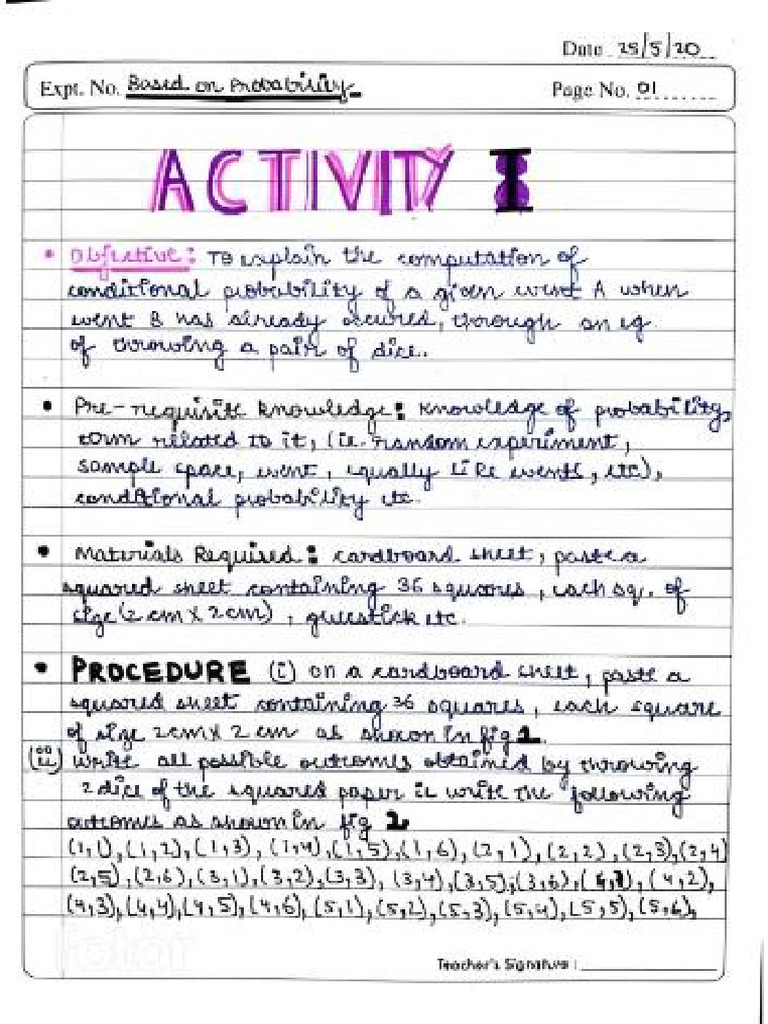 Date 25/5/20
Expt. No. Based on Probability
Page No. 01
ACTIVITY I
• Objective: To explain the computation of
conditional probability of a given event A when
event B has already occured, through an eg.
of throwing a pair of dice.
• Pre-requisite knowledge: Knowledge of probability,
related to it, (ie. random experiment,
sample space, event, equally like events, etc),
conditional probability etc.
• Materials Required: cardboard sheet, paste a
squared sheet containing 36 squares, each sq. of
size (2 cm x 2 cm), etc.
• PROCEDURE (i) on a cardboard sheet, paste a
squared sheet containing 36 squares, each square
of size 2cm x 2 cm as shown in fig 1.
(ii) Write all possible outcomes obtained by throwing
2 dice of the squared paper ie write the following
outcomes as shown in fig 1.
(1,1),(1,2),(1,3),(1,4),(1,5),(1,6),(2,1),(2,2),(2,3),(2,4)
(2,5),(2,6),(3,1),(3,2),(3,3),(3,4),(3,5),(3,6),(4,1),(4,2),
(4,3),(4,4),(4,5),(4,6),(5,1),(5,2),(5,3),(5,4),(5,5),(5,6),
fotor
Teacher's Signature :